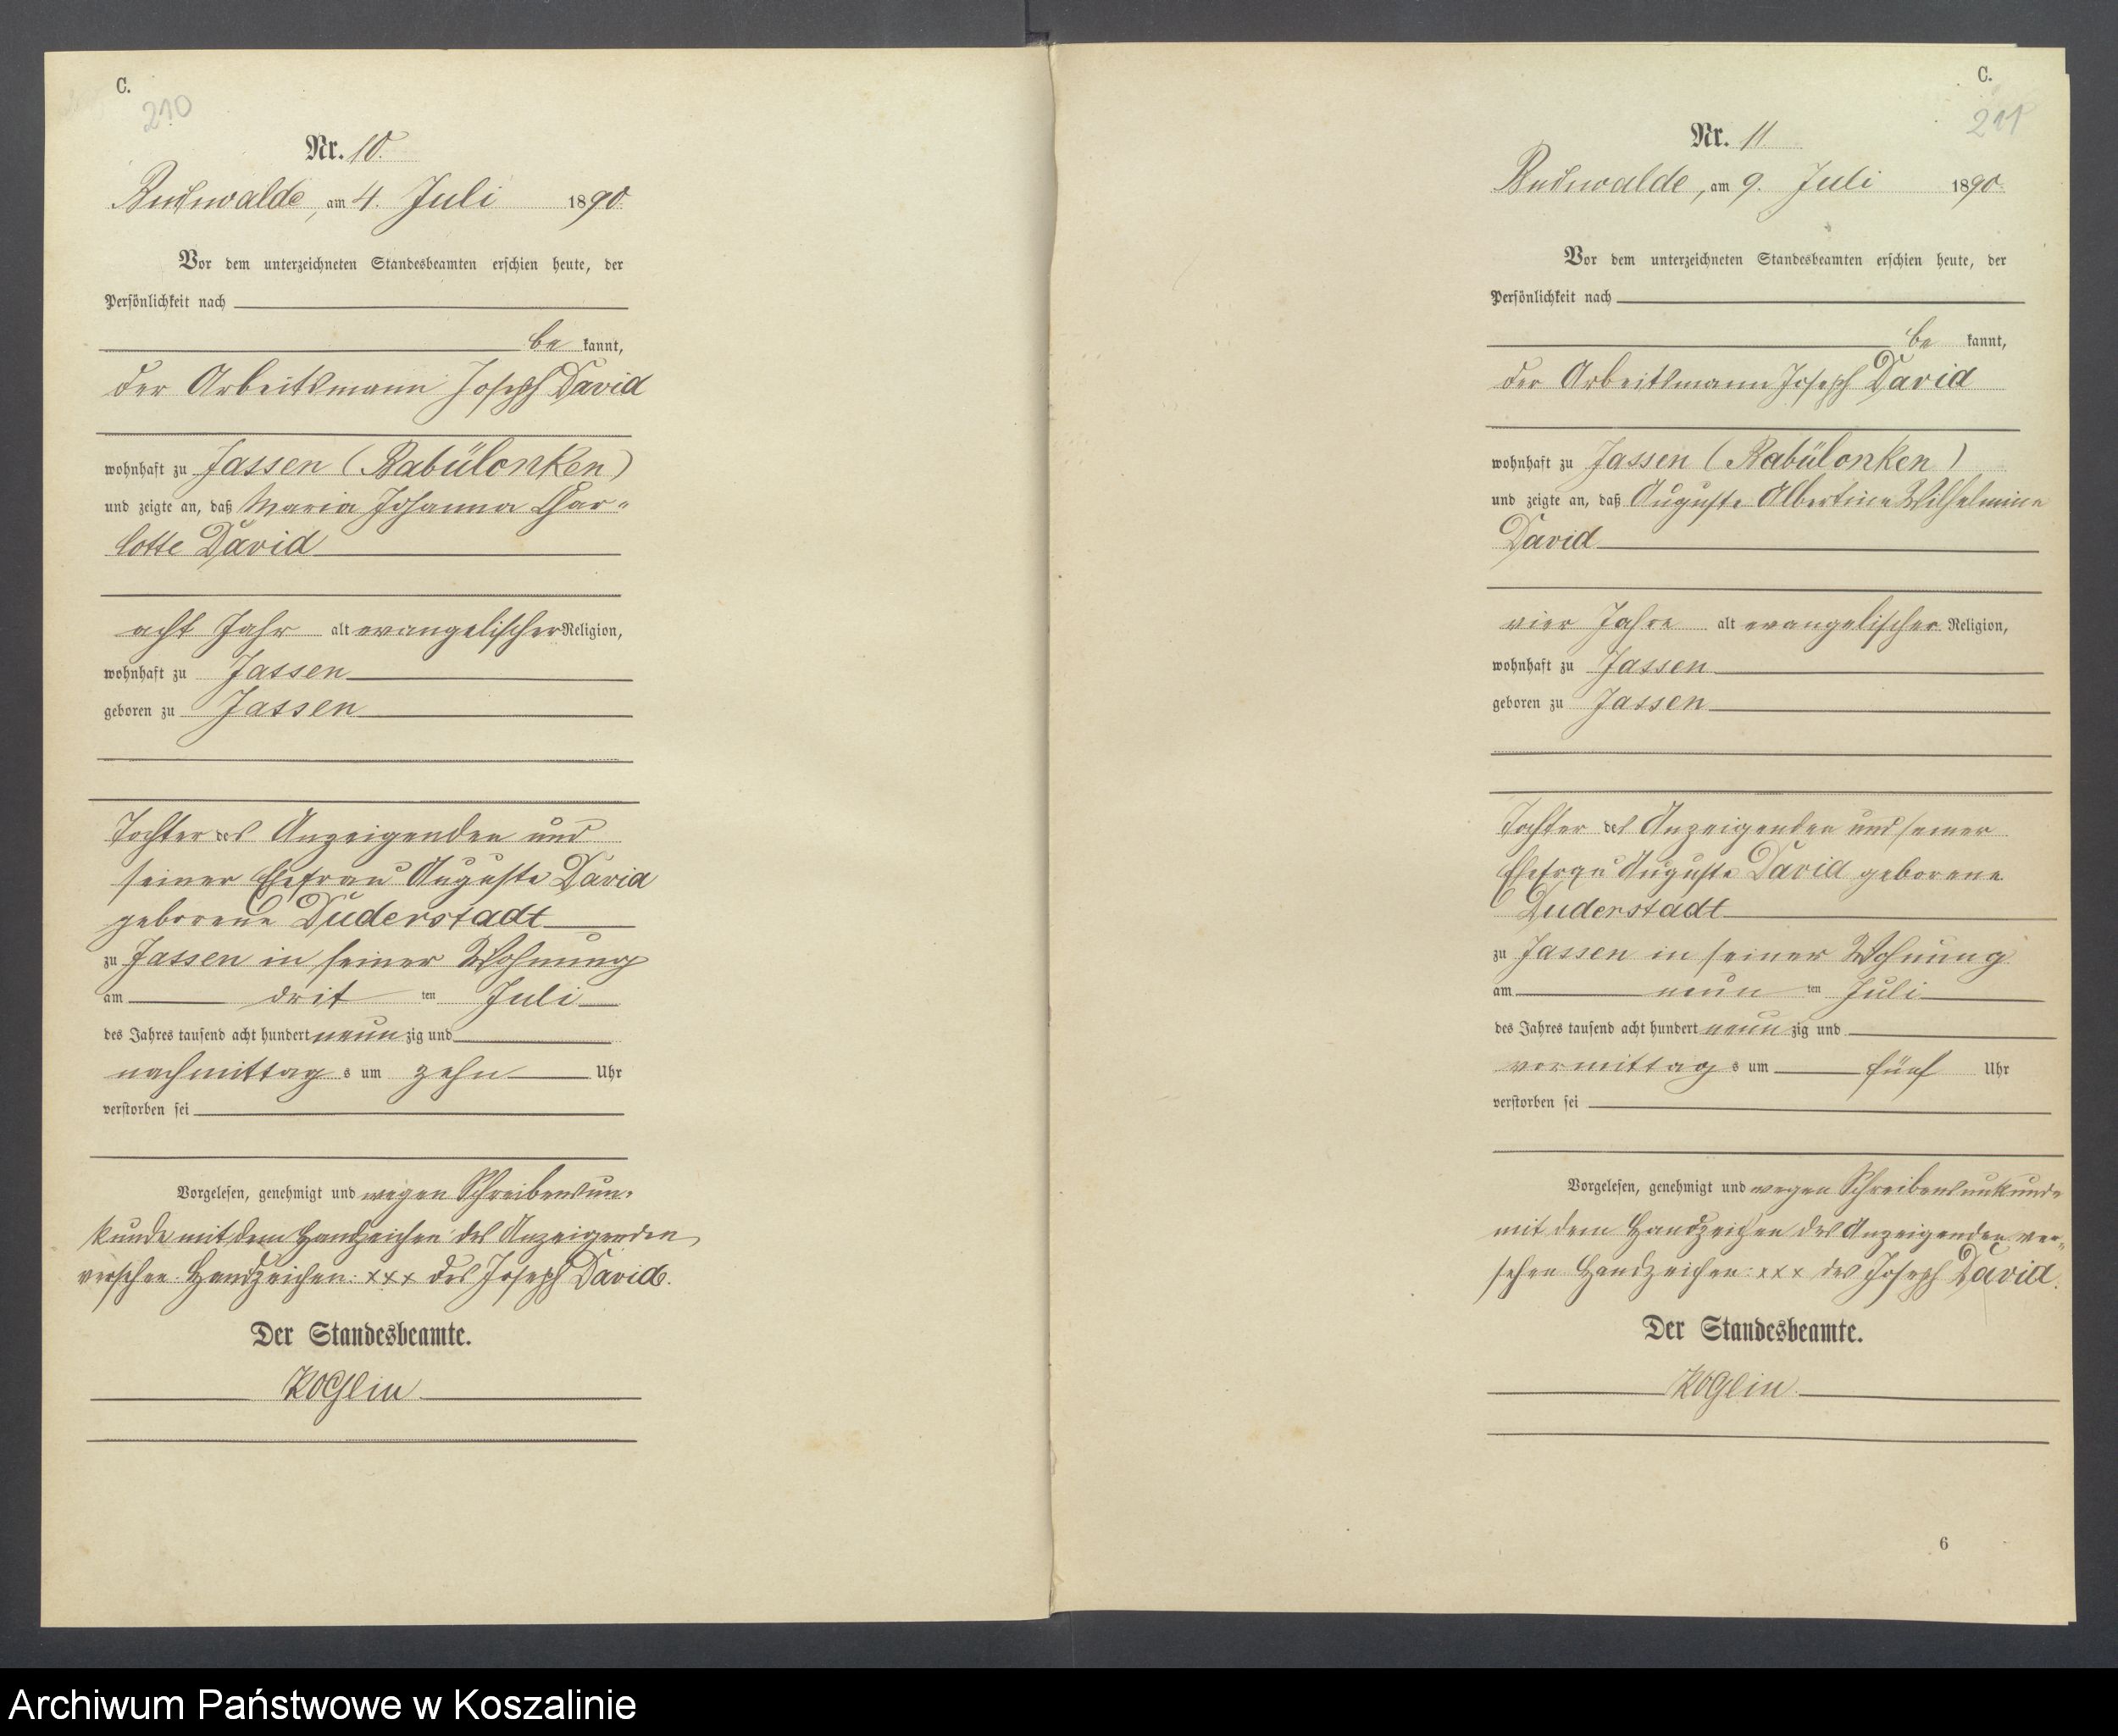 C.
210
Nr. 10.
am 4. Juli 1890.
Vor dem unterzeichneten Standesbeamten erschien heute, der
Persönlichkeit nach
be kannt,
der Arbeitsmann Joseph David
wohnhaft zu Jassen (Babülonken)
und zeigte an, daß Maria Johanna Char-
lotte David
acht Jahr alt evangelischer Religion,
wohnhaft zu Jassen
geboren zu Jassen
Tochter des Anzeigenden und
seiner Ehefrau Auguste David
geborene Duderstadt
zu Jassen in seiner Wohnung
am drit ten Juli
des Jahres tausend acht hundert neun zig und
nachmittag s um zehn Uhr
verstorben sei
Vorgelesen, genehmigt und wegen Schreibensun-
kunde mit dem Handzeichen des Anzeigenden
versehen. Handzeichen: xxx des Joseph David.
Der Standesbeamte.
Koglin
C.
211
Nr. 11
am 9. Juli 1890.
Vor dem unterzeichneten Standesbeamten erschien heute, der
Persönlichkeit nach
be kannt,
der Arbeitsmann Joseph David
wohnhaft zu Jassen (Babülonken)
und zeigte an, daß Auguste Albertine Wilhelmine
David
vier Jahre alt evangelischer Religion,
wohnhaft zu Jassen
geboren zu Jassen
Tochter des Anzeigenden und seiner
Ehefrau Auguste David geborene
Duderstadt
zu Jassen in seiner Wohnung
am neun ten Juli
des Jahres tausend acht hundert neun zig und
vormittag s um fünf Uhr
verstorben sei
Vorgelesen, genehmigt und wegen Schreibensunkunde
mit dem Handzeichen des Anzeigenden ver-
sehen. Handzeichen: xxx des Joseph David.
Der Standesbeamte.
Koglin
6
Archiwum Państwowe w Koszalinie